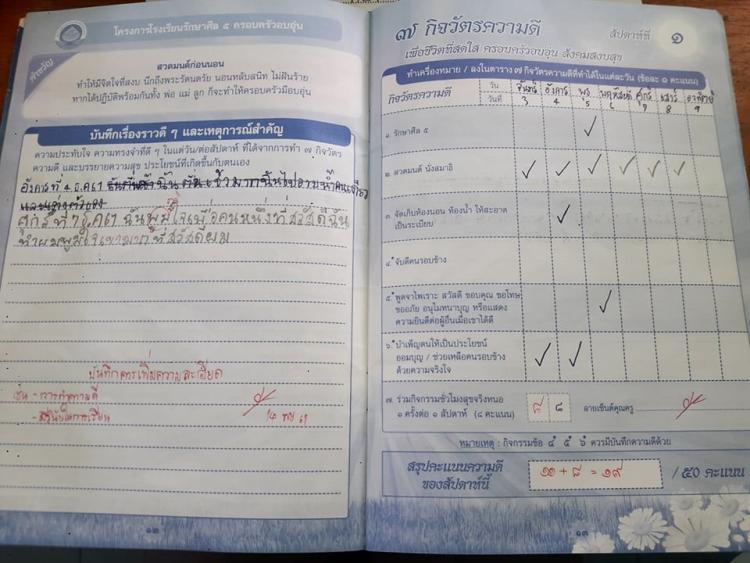 โครงการโรงเรียนรักษาศีล ๕ ครอบครัวอบอุ่น
สวดมนต์ก่อนนอน
ทำให้มีจิตใจที่สงบ นึกถึงพระรัตนตรัย นอนหลับสนิท ไม่ฝันร้าย
หากได้ปฏิบัติพร้อมกันทั้ง พ่อ แม่ ลูก ก็จะทำให้ครอบครัวมีอบอุ่น
บันทึกเรื่องราวดี ๆ และเหตุการณ์สำคัญ
ความประทับใจ ความทรงจำที่ดี ๆ ในแต่วัน/ต่อสัปดาห์ ที่ได้จากการทำ ๗ กิจวัตร
ความดี และบรรยายความสุข ประโยชน์ที่เกิดขึ้นกับตนเอง
อังคารที่ 4 ธ.ค 61 ฉันตื่นเช้ามากฉันไปอาบน้ำคนเดียว
ศุกร์ ที่ 7 ธ.ค 61 ฉันภูมิใจเพื่อคนหนึ่งที่สวัสดีฉัน
บันทึกควรเพิ่มความละเอียด
เช่น - การทำความดี
๗ กิจวัตรความดี
สัปดาห์ที่ ๑
เพื่อชีวิตที่สดใส ครอบครัวอบอุ่น สังคมสงบสุข
ทำเครื่องหมาย / ลงในตาราง ๗ กิจวัตรความดีที่ทำได้ในแต่ละวัน (ข้อละ ๑ คะแนน)
กิจวัตรความดี วัน จันทร์ อังคาร พุธ พฤหัสบดี ศุกร์ เสาร์ อาทิตย์
วันที่ 3 4 5 6 7 8 9
๑. รักษาศีล ๕ ✓
๒. สวดมนต์ นั่งสมาธิ ✓ ✓ ✓ ✓ ✓ ✓
๓. จัดเก็บห้องนอน ห้องน้ำ ให้สะอาด
เป็นระเบียบ ✓
๔. จับดีคนรอบข้าง
๕. พูดจาไพเราะ สวัสดี ขอบคุณ ขอโทษ
ขออภัย อนุโมทนาบุญ หรือแสดง
ความยินดีต่อผู้อื่นเมื่อเขาได้ดี ✓
๖. บำเพ็ญตนให้เป็นประโยชน์
ออมบุญ / ช่วยเหลือคนรอบข้าง
ด้วยความจริงใจ ✓ ✓
๗. ร่วมกิจกรรมชั่วโมงสุขจริงหนอ
๑ ครั้งต่อ ๑ สัปดาห์ (๘ คะแนน) ๘ ๘ ลายเซ็นต์คุณครู
หมายเหตุ : กิจกรรมข้อ ๔ ๕ ๖ ควรมีบันทึกความดีด้วย
สรุปคะแนนความดี
ของสัปดาห์นี้ ๑๑ + ๘ = ๑๙ / ๕๐ คะแนน
๑๒
๑๓